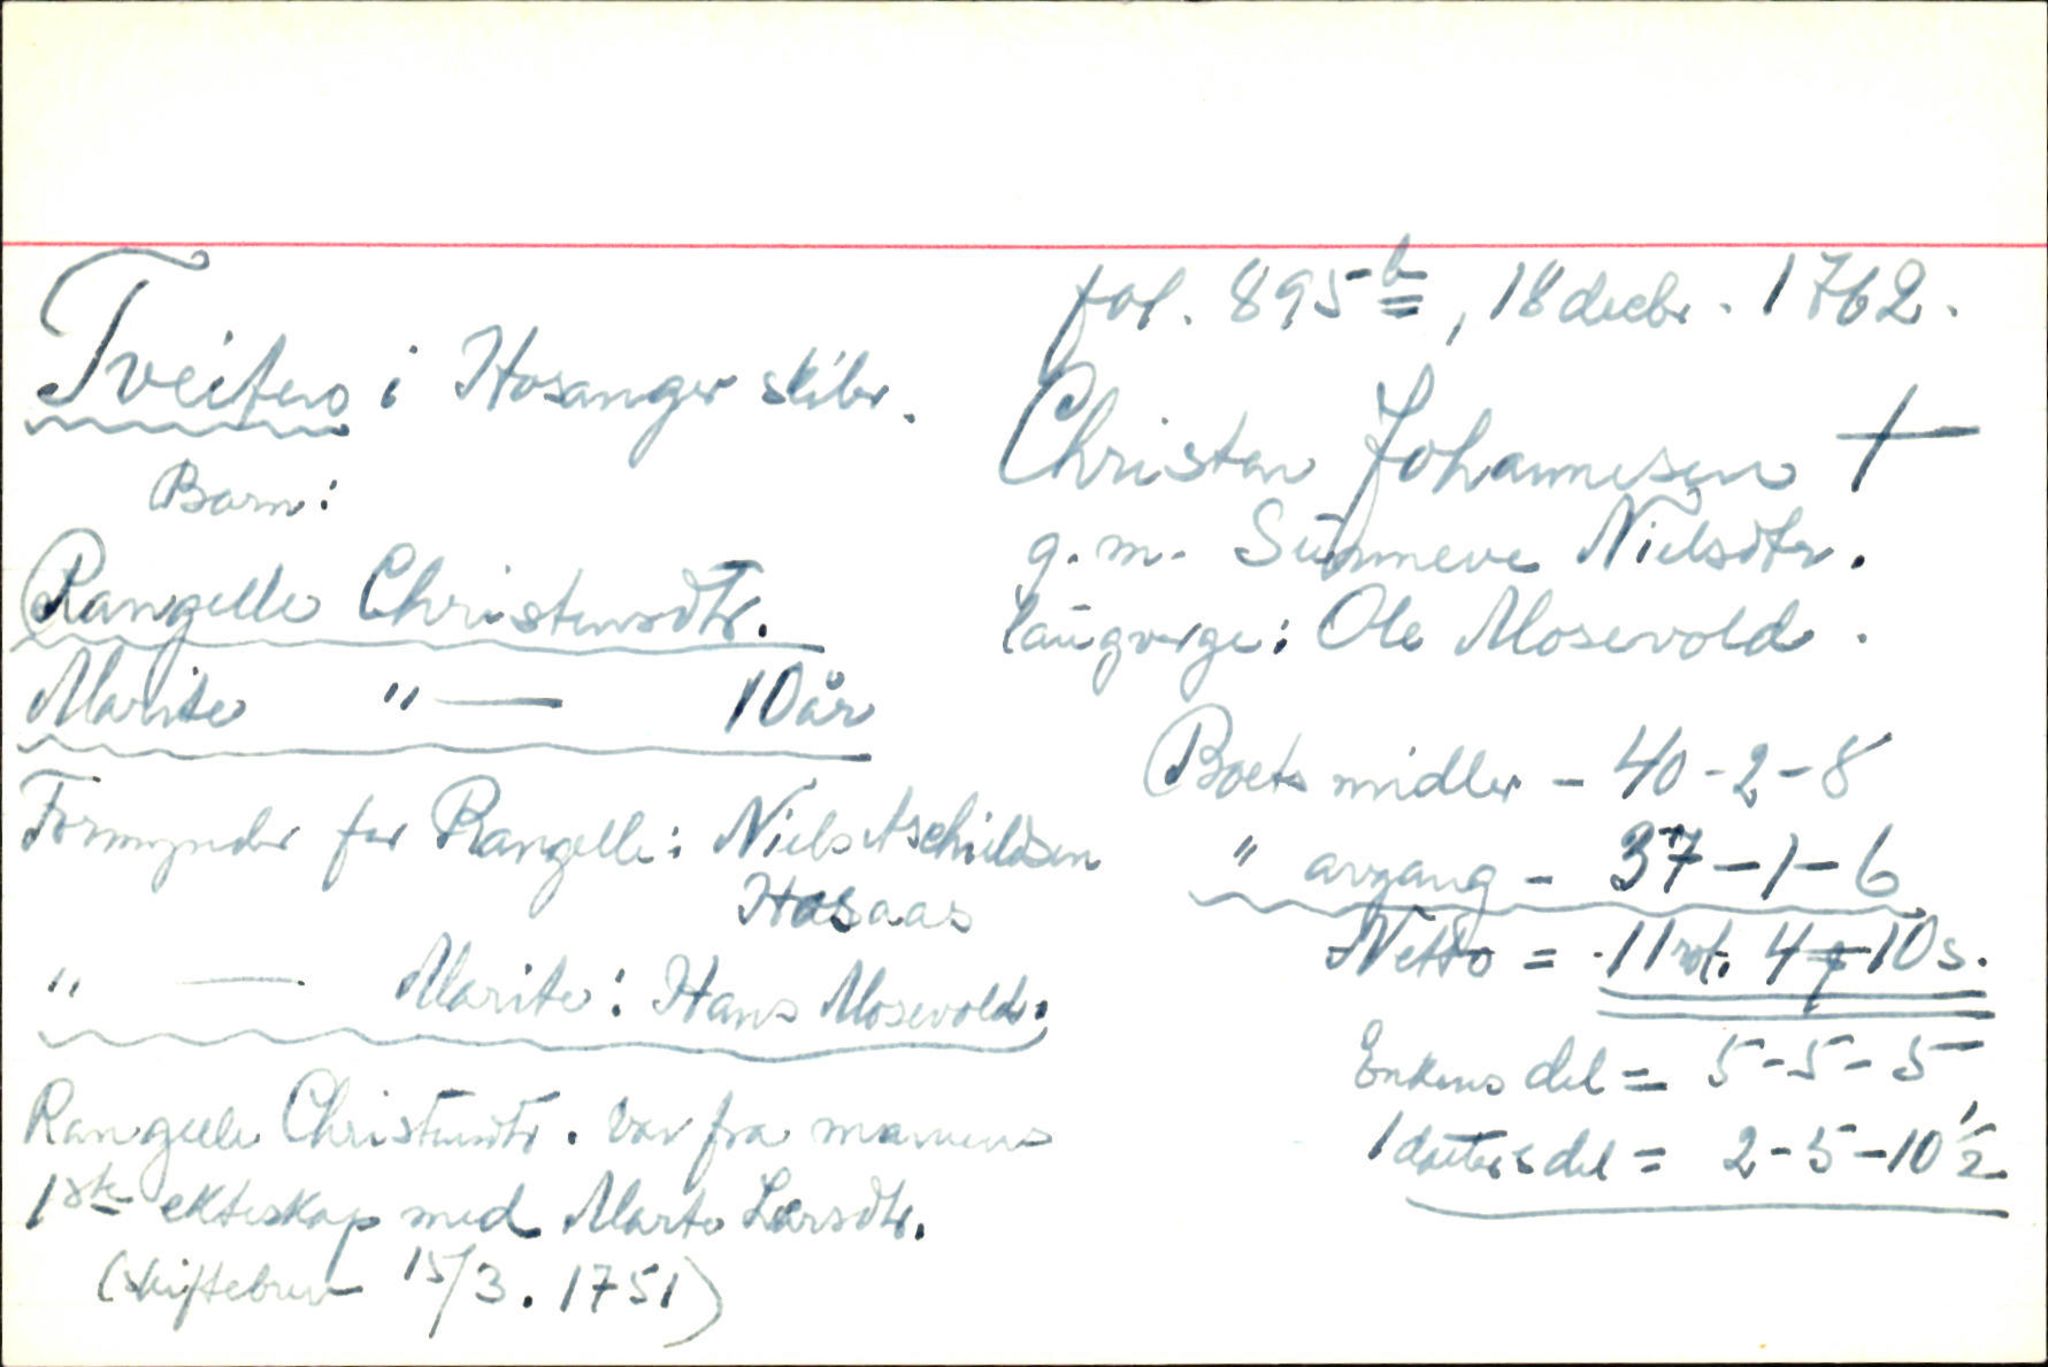 Tveiten i Hosanger skibr.
Barn:
Rangelle Christensdtr.
Marite " — 10 år
Formynder for Rangelle: Niels Aschildsen
Hosaas
" — Marite: Hans Mosevold.
Rangelle Christensdtr. var fra mannens
1ste ekteskap med Marte Larsdtr.
(skiftebrev 15/3. 1751)
fol. 895b, 18 decbr. 1762.
Christen Johannesen †
g. m. Sünneve Nielsdtr.
laugverge: Ole Mosevold.
Boets midler - 40-2-8
" avgang - 37-1-6
Netto = 11 rdt. 4 10 s.
Enkens del = 5-5-5
1 datters del = 2-5-10 1/2